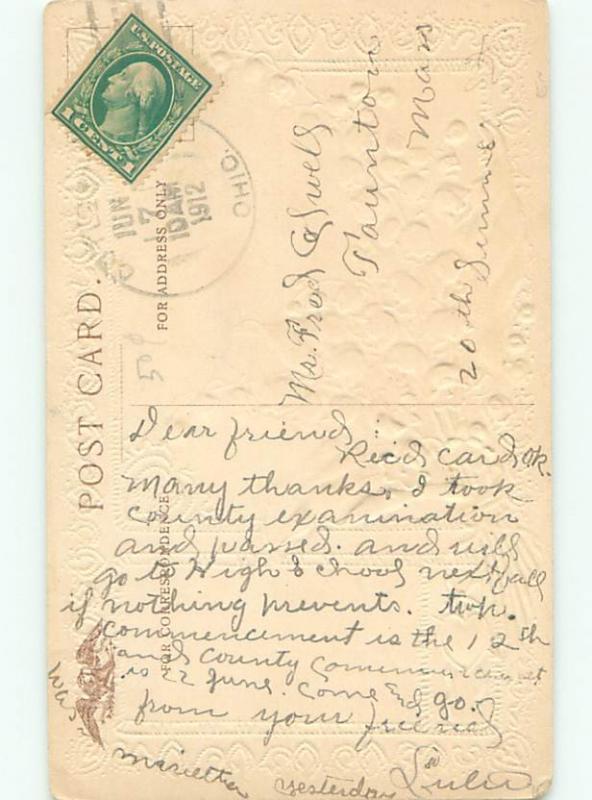 U.S. POSTAGE
1 CENT 1
JUN
7
10 AM
1912
OHIO.
POST CARD.
FOR ADDRESS ONLY
Mr. Fred
Taunton
Mass
20th
50
FOR CORRESPONDENCE
Dear friend:
Rec'd card ok.
Many thanks, I took
county examination
and passed. and will
go to High School next fall
if nothing prevents. twp.
commencement is the 12th
and county commencement
is 22 June. Come and go.
from your friend
Lulu
was
in
Marietta yesterday